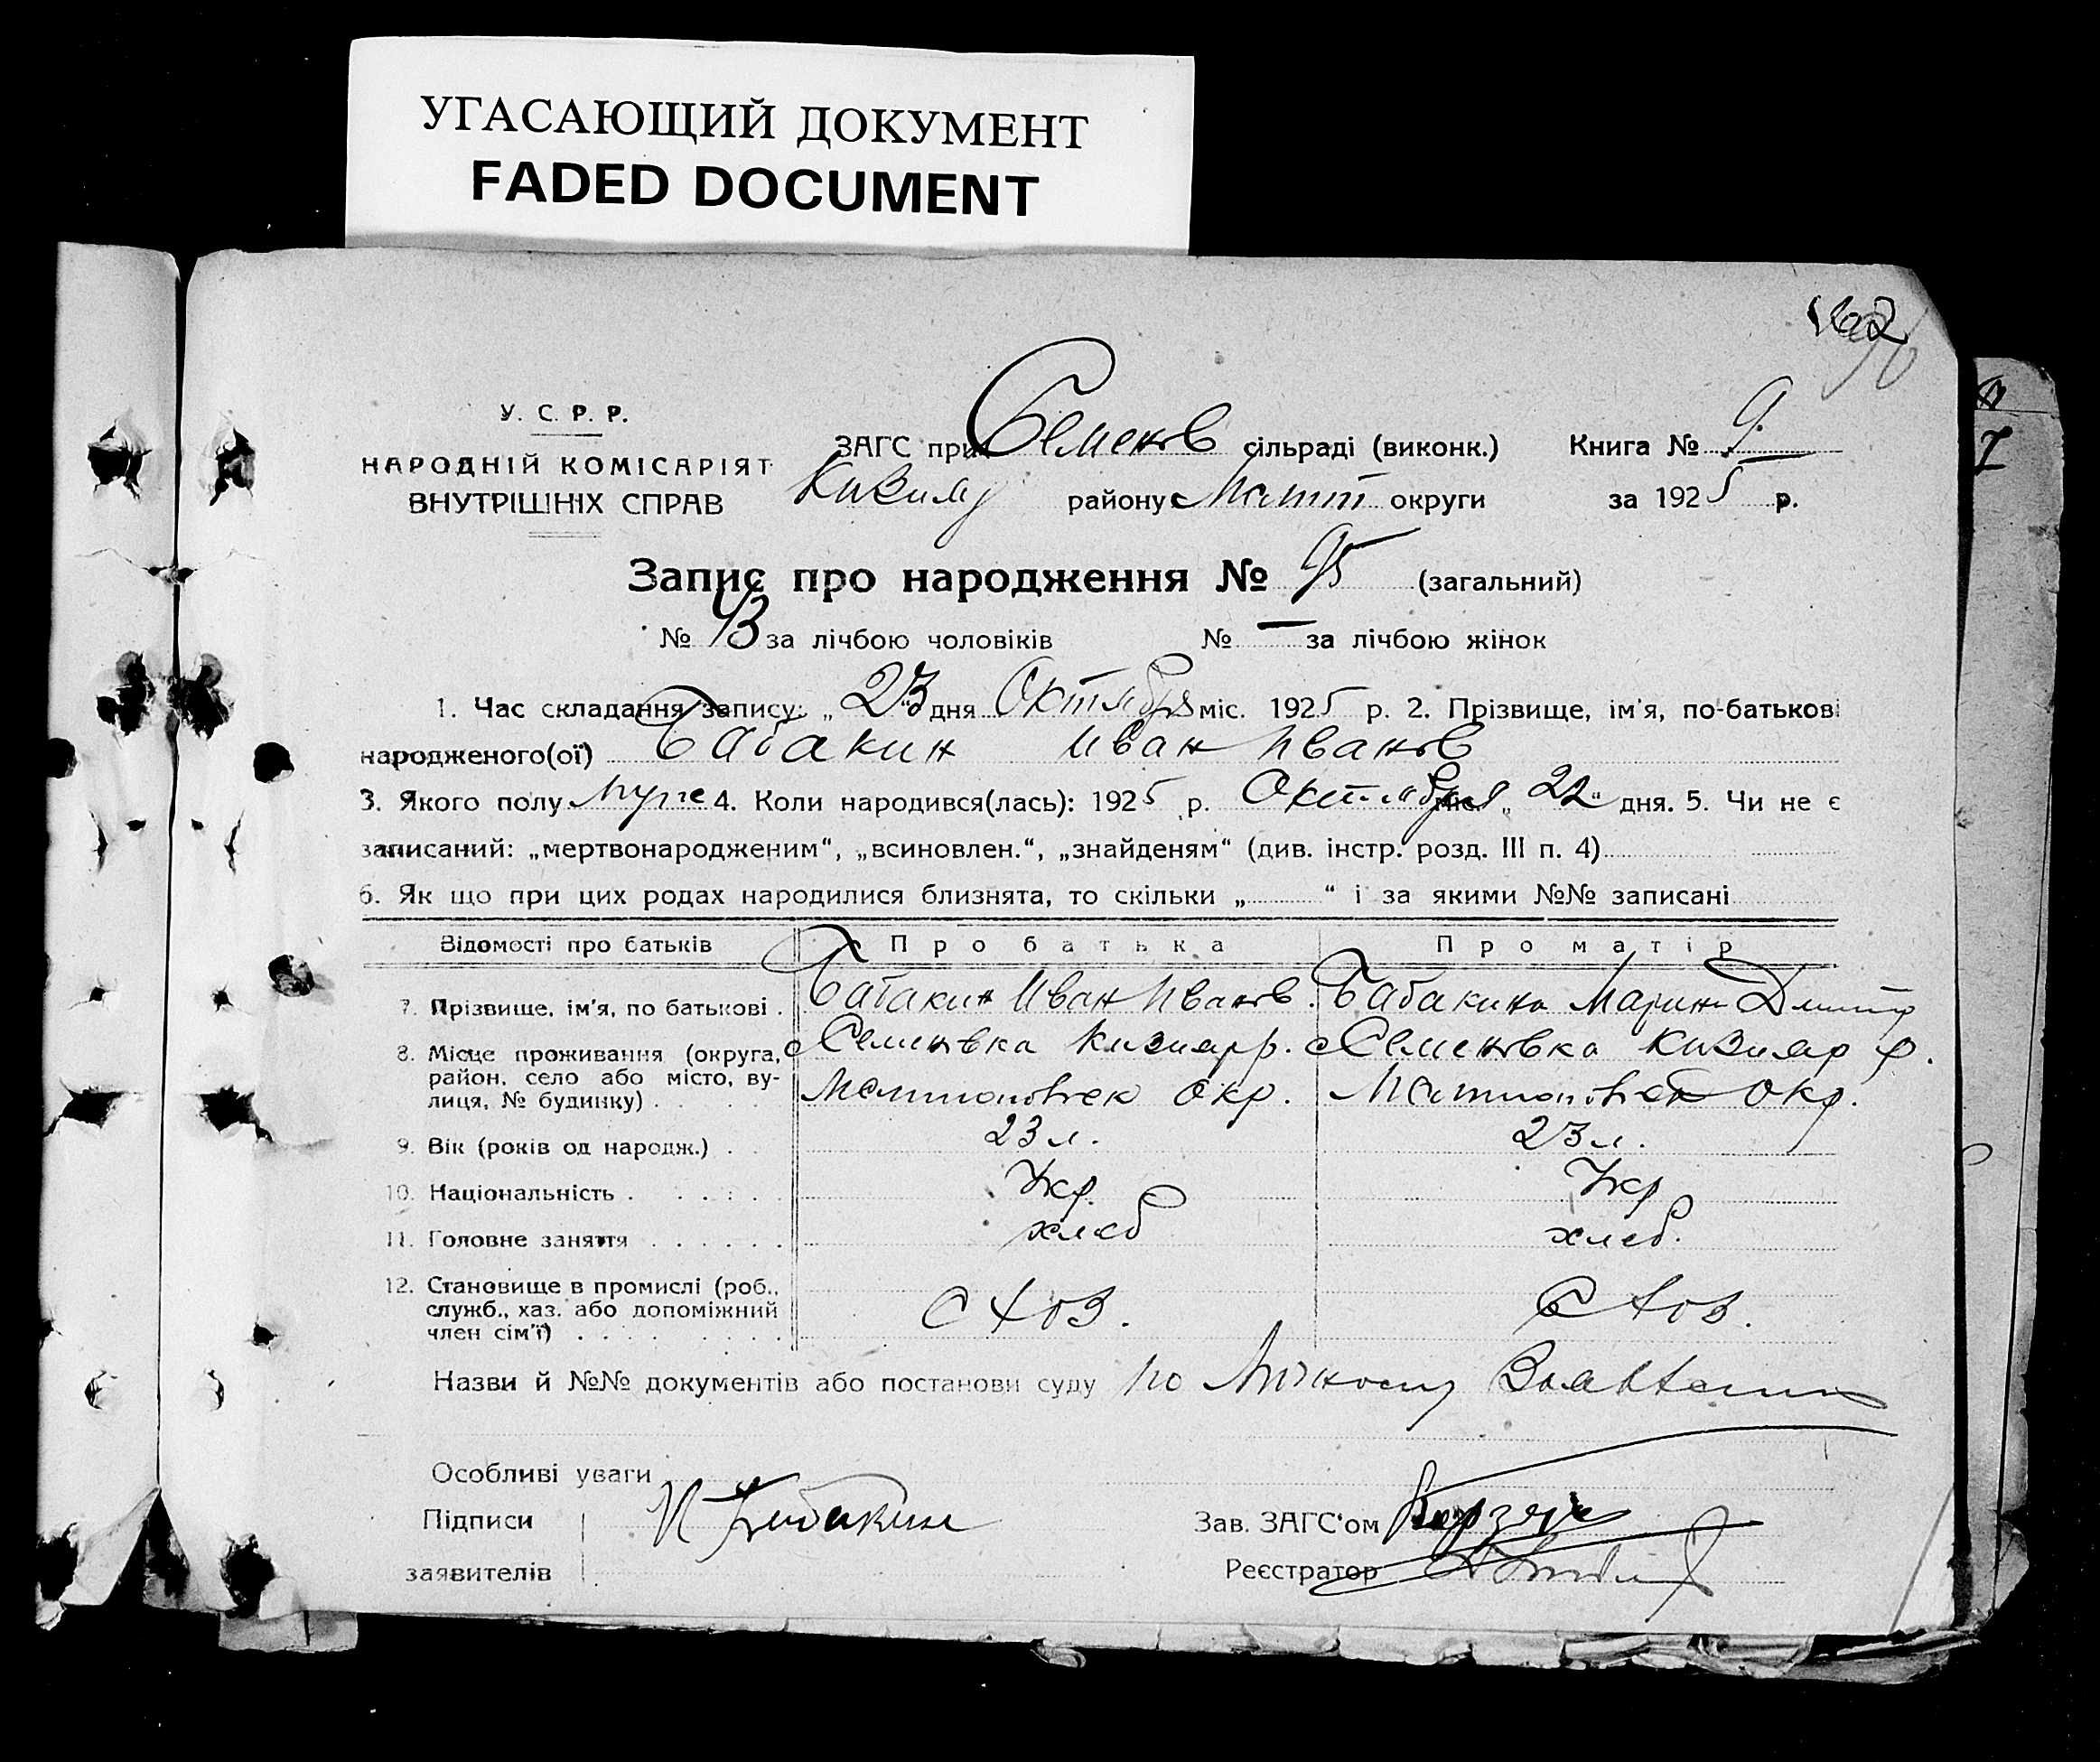 УГАСАЮЩИЙ ДОКУМЕНТ
FADED DOCUMENT
У. С. Р. Р.
НАРОДНІЙ КОМІСАРІЯТ
ВНУТРІШНІХ СПРАВ
ЗАГС при Семенов сільраді (виконк.) Книга № 9
Кизияр району Мелит округи за 1925 р.
Запис про народження № 95 (загальний)
№ 43 за лічбою чоловіків № — за лічбою жінок
1. Час складання запису: „23“ дня Октября міс. 1925 р. 2. Прізвище, ім'я, по-батькові
народженого(ої) Бабакин Иван Иванов
3. Якого полу муж 4. Коли народився(лась): 1925 р. Октября міс. „22“ дня. 5. Чи не є
записаний: „мертвонародженим“, „всиновлен.“, „знайденям“ (див. інстр. розд. III п. 4)
6. Як що при цих родах народилися близнята, то скільки „ “ і за якими №№ записані
Відомості про батьків Про батька Про матір
7. Прізвище, ім'я, по батькові . Бабакин Иван Иванов. Бабакина Марина Дмитр
8. Місце проживання (округа, с Семеновка Кизияр р. с Семеновка Кизияр р.
район, село або місто, ву-
лиця, № будинку) . Мелитопольск окр. Мелитопольск окр.
9. Вік (років од народж.) . 23 л. 23 л.
10. Національність . Укр. Укр
11. Головне заняття . хлеб хлеб.
12. Становище в промислі (роб.,
служб., хаз. або допоміжний С хоз. С хоз.
член сім'ї)
Назви й №№ документів або постанови суду по личному
Особливі уваги
Підписи И Бабакин Зав. ЗАГС'ом
заявителів Реєстратор